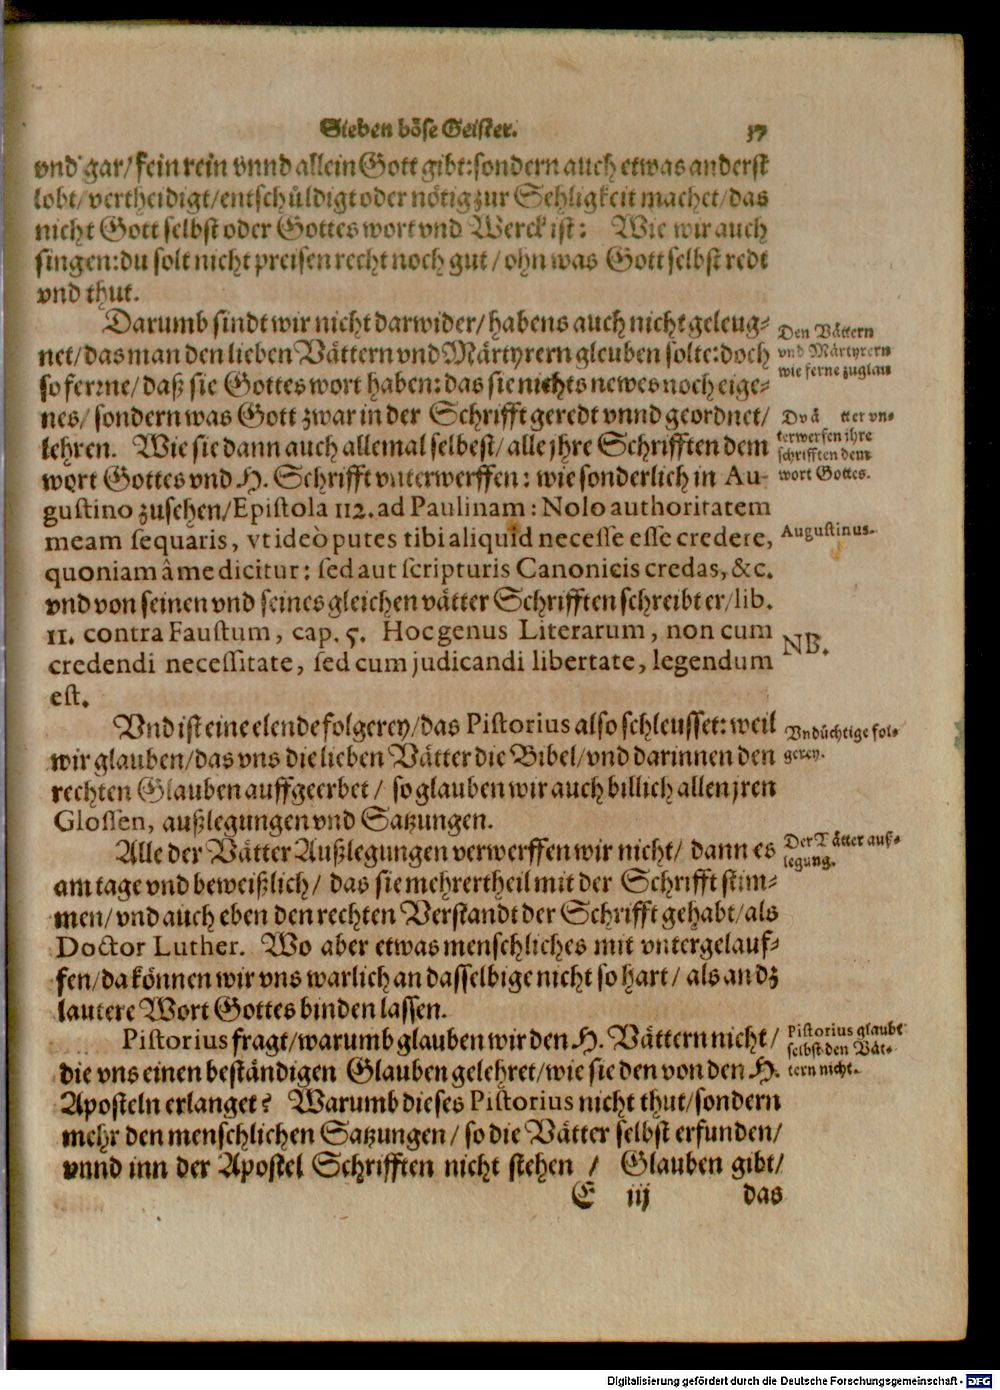 Sieben böse Geister. 37
vnd gar/ fein rein vnnd allein Gott gibt: sondern auch etwas anderst
lobt/ vertheidigt/ entschüldigt oder nötig zur Sehligkeit machet/ das
nicht Gott selbst oder Gottes wort vnd Werck ist: Wie wir auch
singen: du solt nicht preisen recht noch gut/ ohn was Gott selbst redt
vnd thut.
Darumb sindt wir nicht darwider/ habens auch nicht geleug-
net/ das man den lieben Vättern vnd Märtyrern gleuben solte: doch
so ferrne/ daß sie Gottes wort haben: das sie nichts newes noch eige-
nes/ sondern was Gott zwar in der Schrifft geredt vnnd geordnet/
lehren. Wie sie dann auch allemal selbest/ alle jhre Schrifften dem
wort Gottes vnd H. Schrifft vnterwerffen: wie sonderlich in Au-
gustino zusehen/ Epistola 112. ad Paulinam: Nolo authoritatem
meam sequaris, vt ideò putes tibi aliquid necesse esse credere,
quoniam â me dicitur: sed aut scripturis Canonicis credas, &c.
vnd von seinen vnd seines gleichen vätter Schrifften schreibt er/ lib.
11. contra Faustum, cap. 5. Hoc genus Literarum, non cum
credendi necessitate, sed cum judicandi libertate, legendum
est.
Vnd ist eine elende folgerey/ das Pistorius also schleusset: weil
wir glauben/ das vns die lieben Vätter die Bibel/ vnd darinnen den
rechten Glauben auffgeerbet/ so glauben wir auch billich allen jren
Glossen, außlegungen vnd Satzungen.
Alle der Vätter Außlegungen verwerffen wir nicht/ dann es
am tage vnd beweißlich/ das sie mehrertheil mit der Schrifft stim-
men/ vnd auch eben den rechten Verstandt der Schrifft gehabt/ als
Doctor Luther. Wo aber etwas menschliches mit vntergelauf-
fen/ da können wir vns warlich an dasselbige nicht so hart/ als an dz
lautere Wort Gottes binden lassen.
Pistorius fragt/ warumb glauben wir den H. Vättern nicht/
die vns einen beständigen Glauben gelehret/ wie sie den von den H.
Aposteln erlanget? Warumb dieses Pistorius nicht thut/ sondern
mehr den menschlichen Satzungen/ so die Vätter selbst erfunden/
vnnd inn der Apostel Schrifften nicht stehen / Glauben gibt/
E iij das
Den Vättern
vnd Märtyrern
wie ferne zuglau
tter vn-
terwerfen ihre
schrifften dem
wort Gottes.
Augustinus.
NB.
Vndüchtige fol-
gerey.
Der Vätter auß-
legung.
Pistorius glaubt
selbst den Vät-
tern nicht.
Digitalisierung gefördert durch die Deutsche Forschungsgemeinschaft - DFG